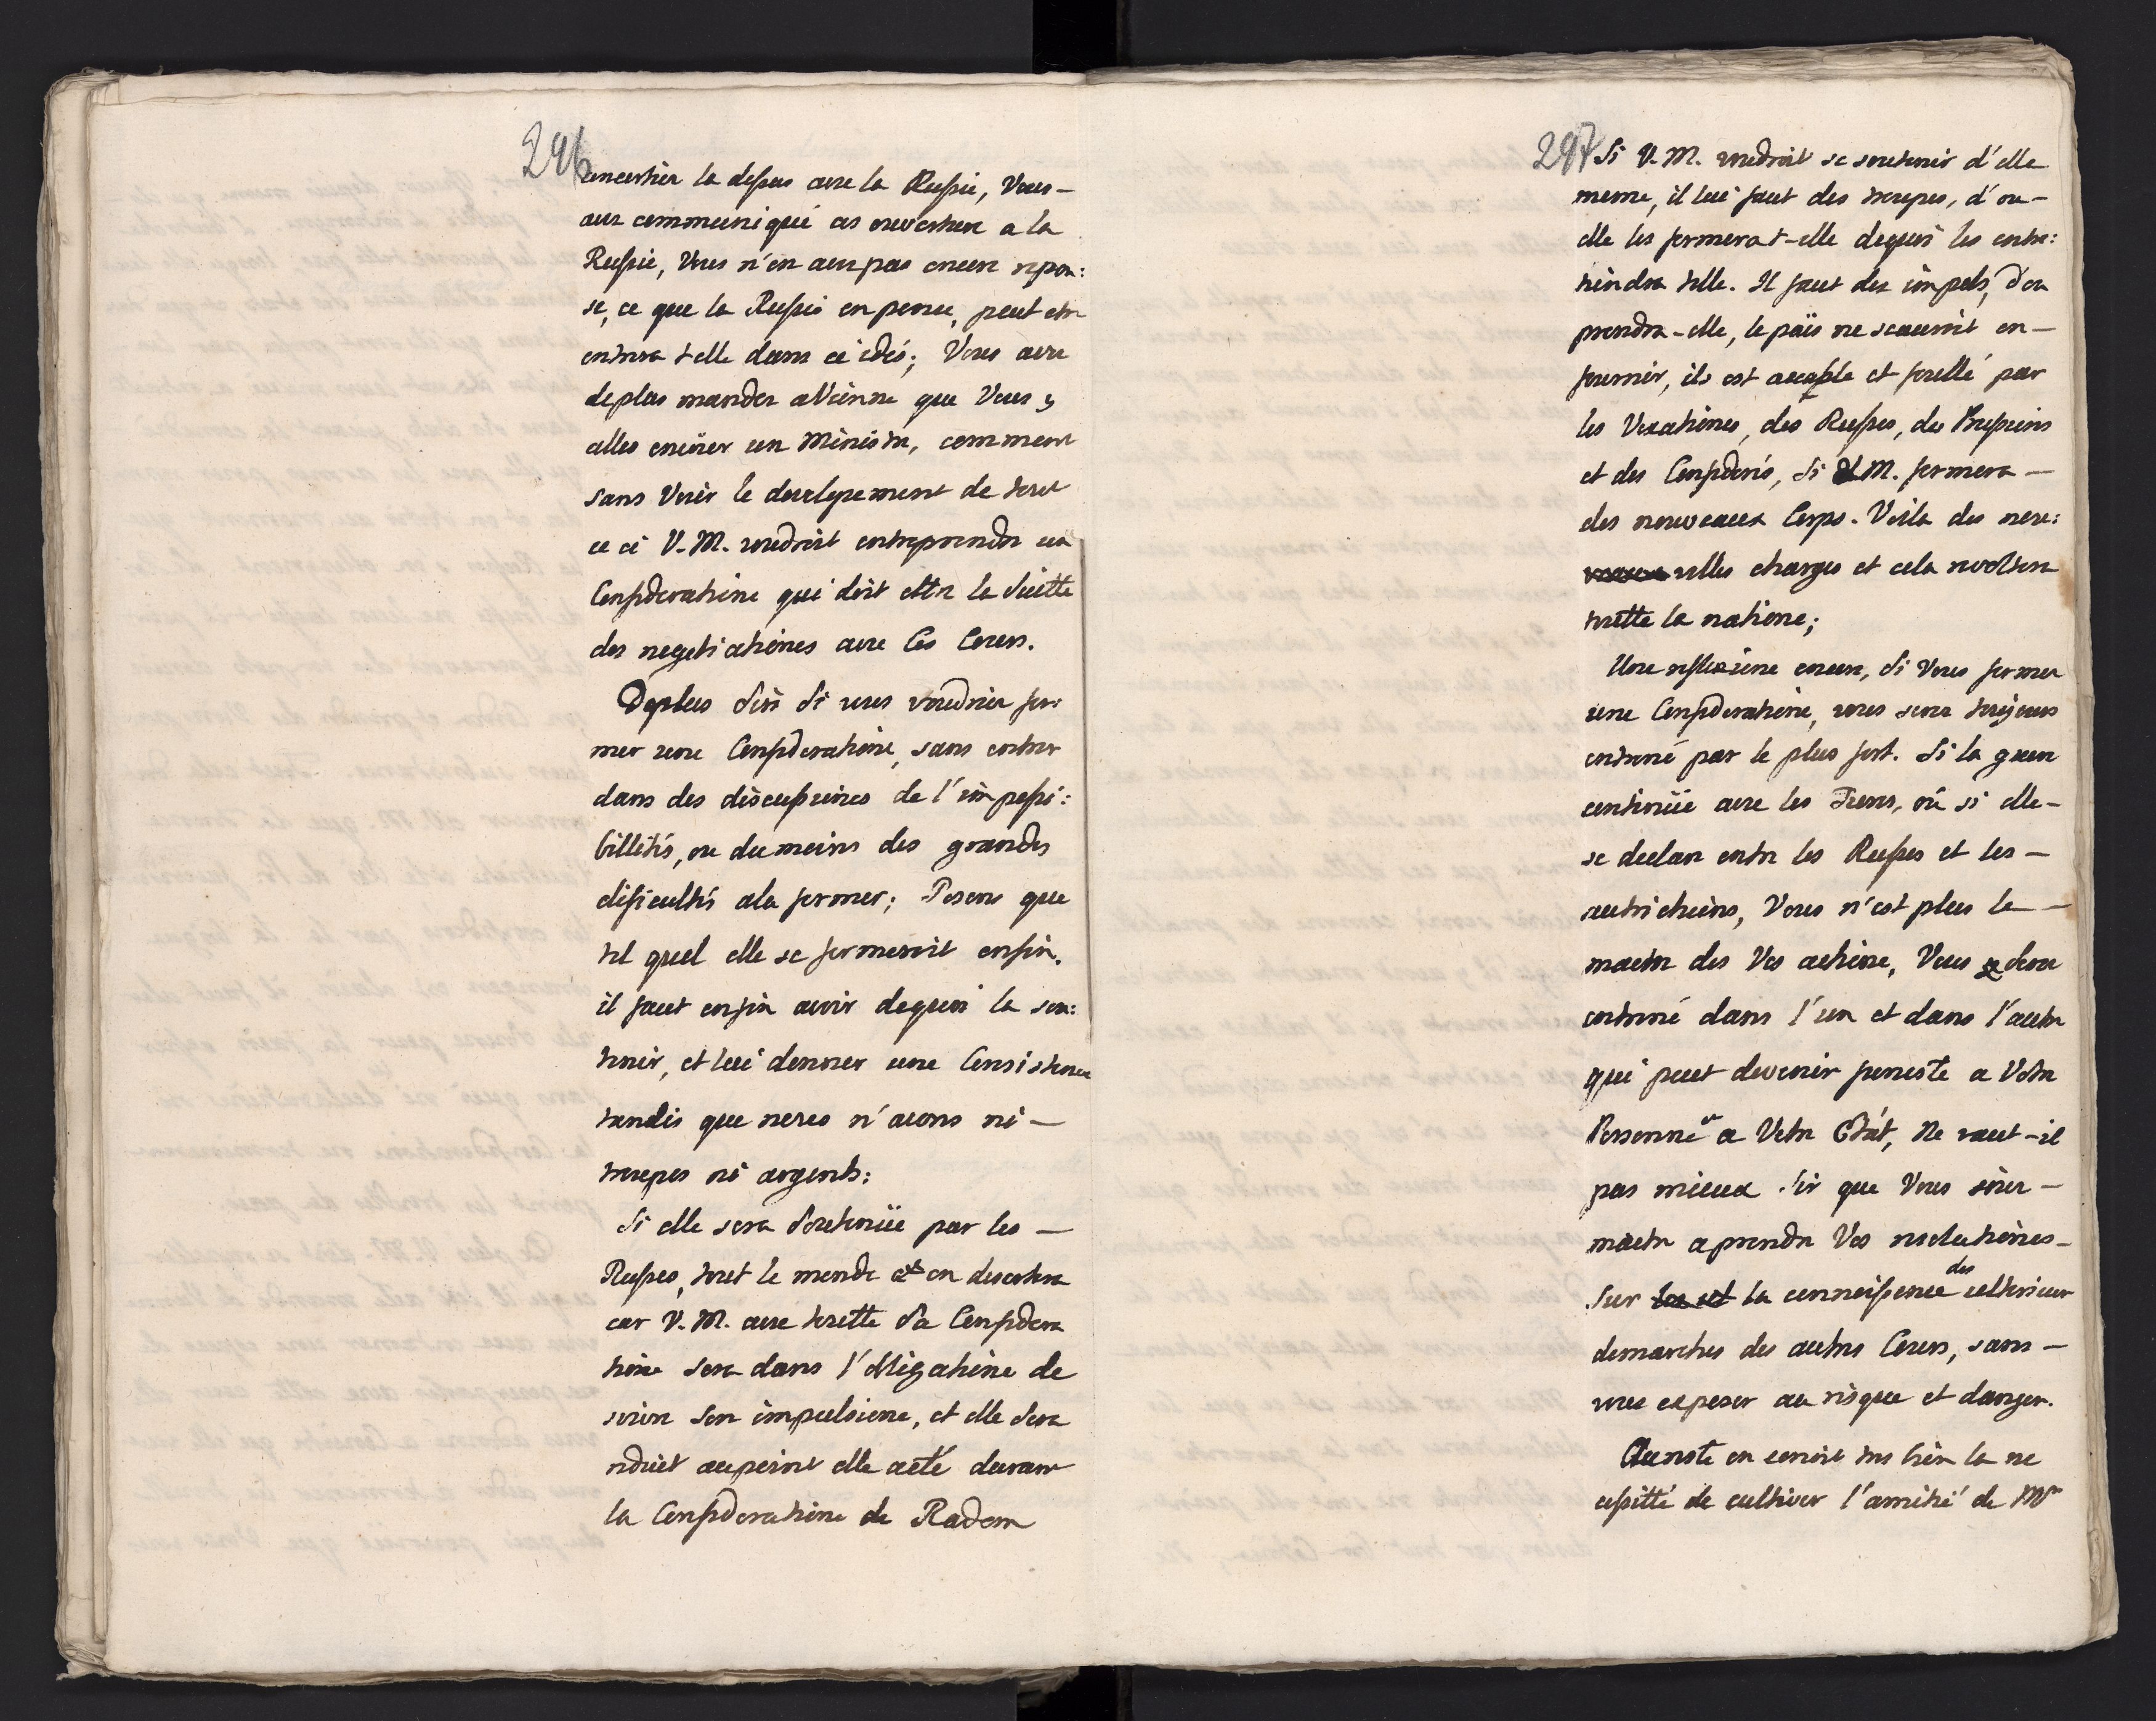 296
concertér la desus avec la Russie, Vous —
avez communiqué ces ouverture a la
Russie, Vous n'en avez pas encore repon:
se, ce que la Russie en pense, peut etre
entrera t elle dans ce idés; Vous avez
deplus mander a Vienne que Vous y
alles envöier un Ministre, comment
sans Voüir le developement de tout
ce ci V. M. voudroit entreprendre un
Confederatione qui doit ettre la suitte
des negotiationes avec Ces Cours.
Deplus Sir si vous voudriez for:
mer une Confederatione, sans entrer
dans des discussiones de l'impossi:
billités, ou du moins des grandes
dificultés a la former; Posons que
tel quel elle se formeroit enfin.
il faut enfin avoir dequoi la sou:
tenir, et lui donner une Consistence
tandis que nous n'avons ni —
troupes ni argents:
Si elle sera Soutenüe par les —
Russes, tout le monde en desertera
car V. M. avec toutte Sa Confedera
tione sera dans l'obligatione de
suivre Son impulsione, et elle Sera
reduit au point elle a eté devant
la Confederatione de Radom
297
Si V. M. voudroit se soutenir d'elle
meme, il lui faut des troupes, d'ou —
elle les formerat-elle dequoi les entre:
tiendra telle. Il faut des impots, d'ou
prendra-elle, le païs ne scauroit en —
fournir, ils est accable et foullé par
les Vexationes, des Russes, des Prussiens
et des Confederés, Si V. M. formera —
des nouveaux Corps. Voila des nou:
velles charges et cela revoltera
toutte la natione;
Une reflexione encore, Si Vous former
une Confederatione, vous serez toujours
entrainé par le plus fort. Si la guerre
continüe avec les Turcs, oú si elle —
se declare entre les Russes et les —
autrichiens, Vous n'est plus le —
maitre des Vos actione, Vous serez
entrainé dans l'un et dans l'autre
qui peut devenir funeste a Votre
Personne et a Votre Etát, Ne vaut-il
pas mieux Sir que Vous soiez —
maitre a prendre Vos resolutiones —
Sur la connoissence des ulterieur
demarches des autres Cours, sans —
vous exposer au risque et danger.
Aureste on conoit tres bien la ne
cessitté de cultiver l'amitié de Mr